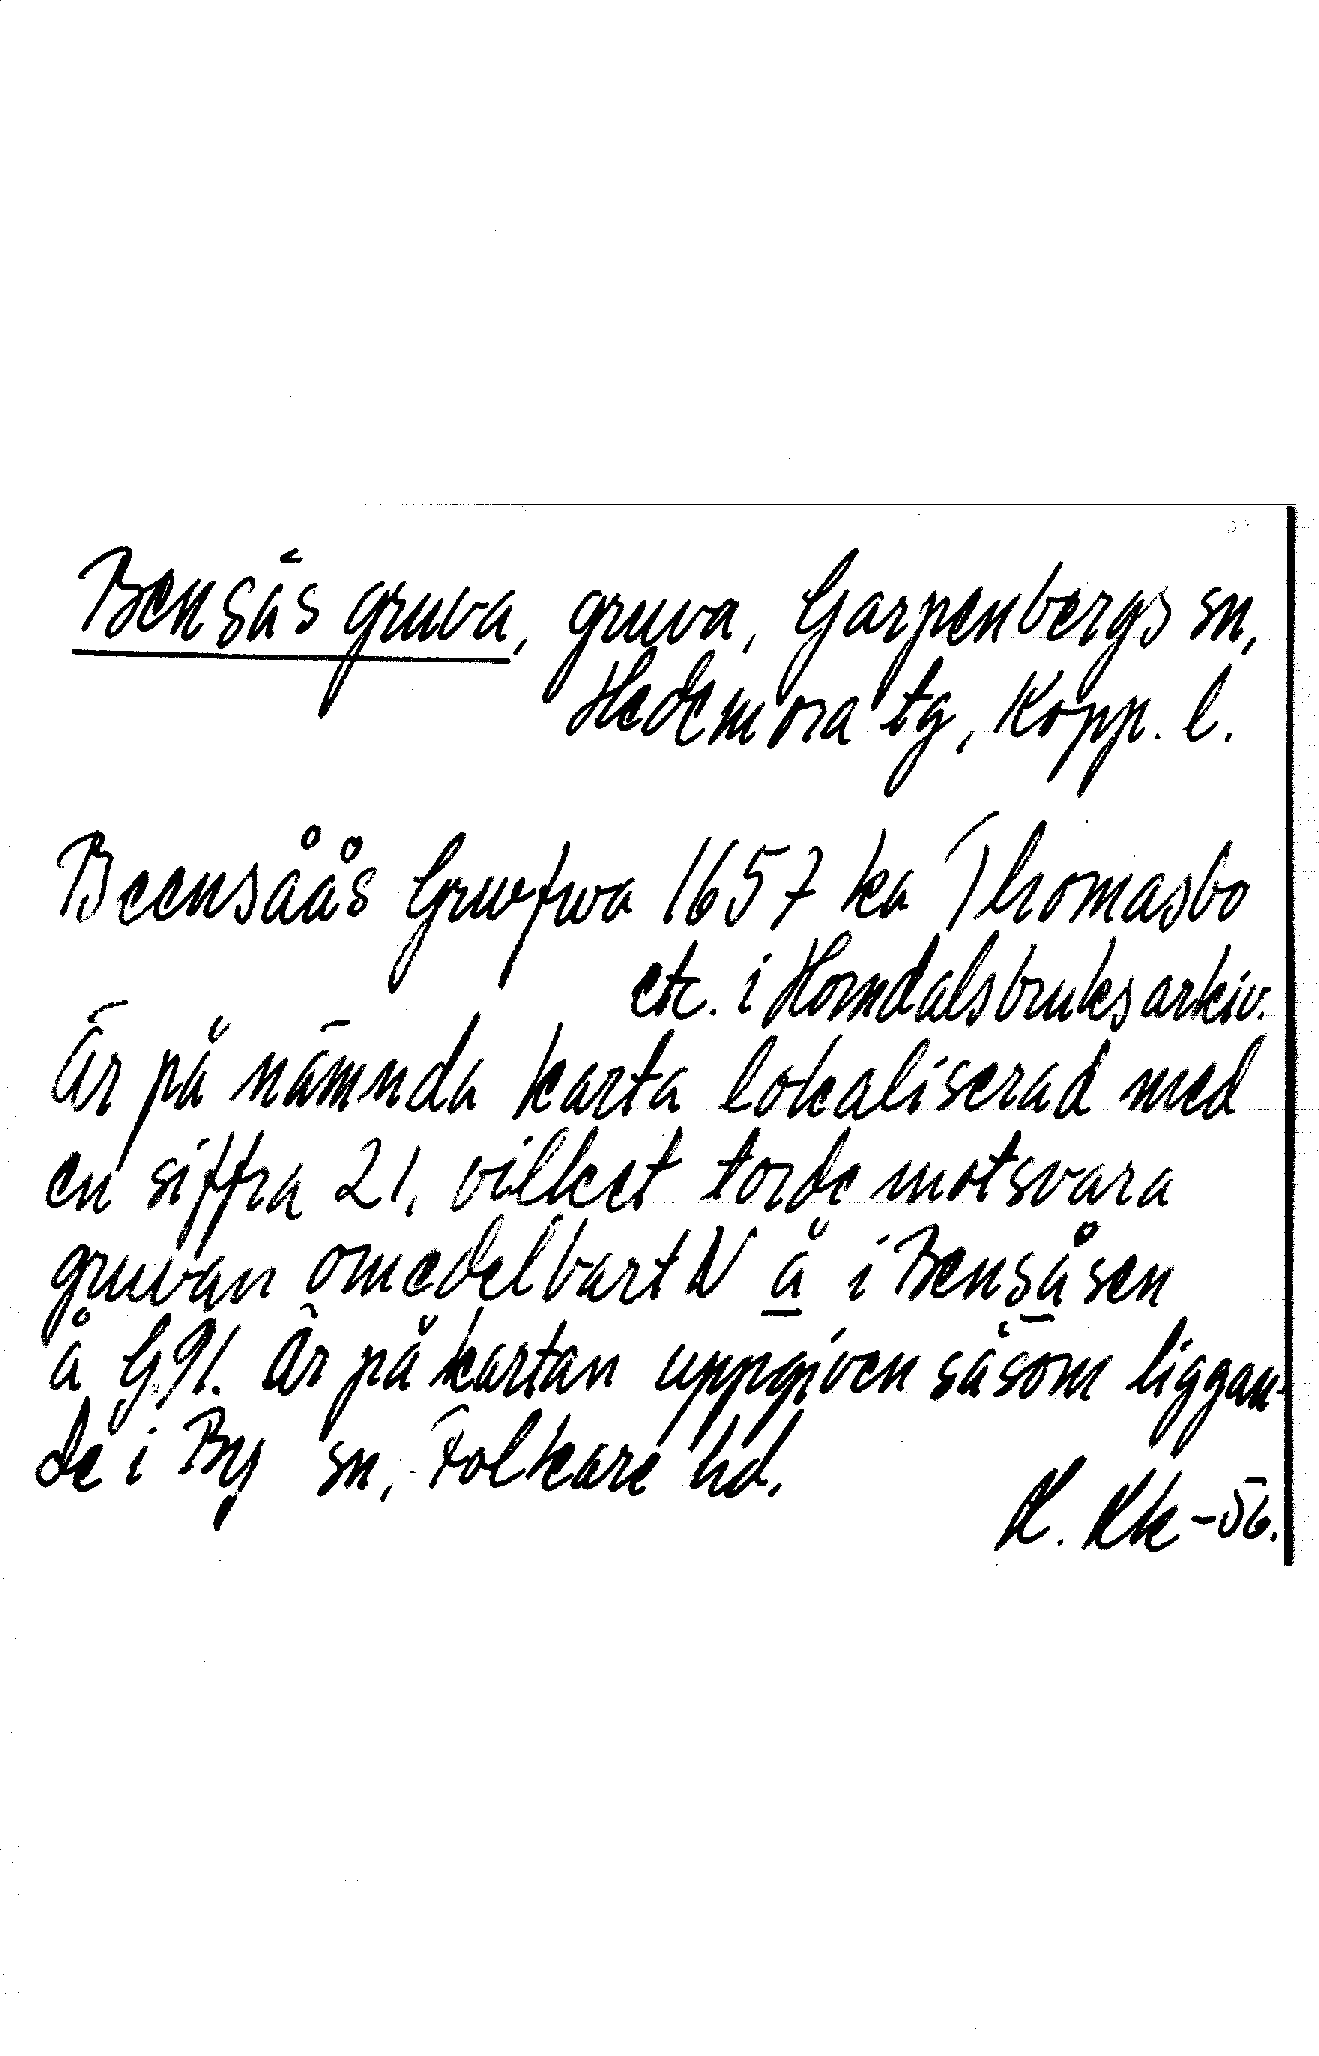 Bensås gruva, gruva, Garpenbergs sn,
Hedemora tg, Kopp. l.
Beensåås Grufwa 1657 ka Thomasbo
etc. i Horndalsbruksarkiv.
Är på nämnda karta lokaliserad med
en siffra 21, vilket torde motsvara
gruvan omedelbart N å i Bensåsen
å G91. Är på kartan uppgiven såsom liggan-
de i By sn, Folkare hd.
K. Kk -56.